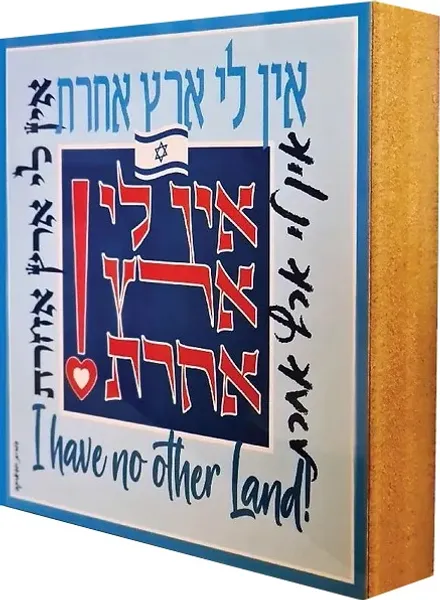 אין לי ארץ אחרת
אין לי ארץ אחרת
אין לי
ארץ
אחרת!
אין לי ארץ אחרת
I have no other Land!